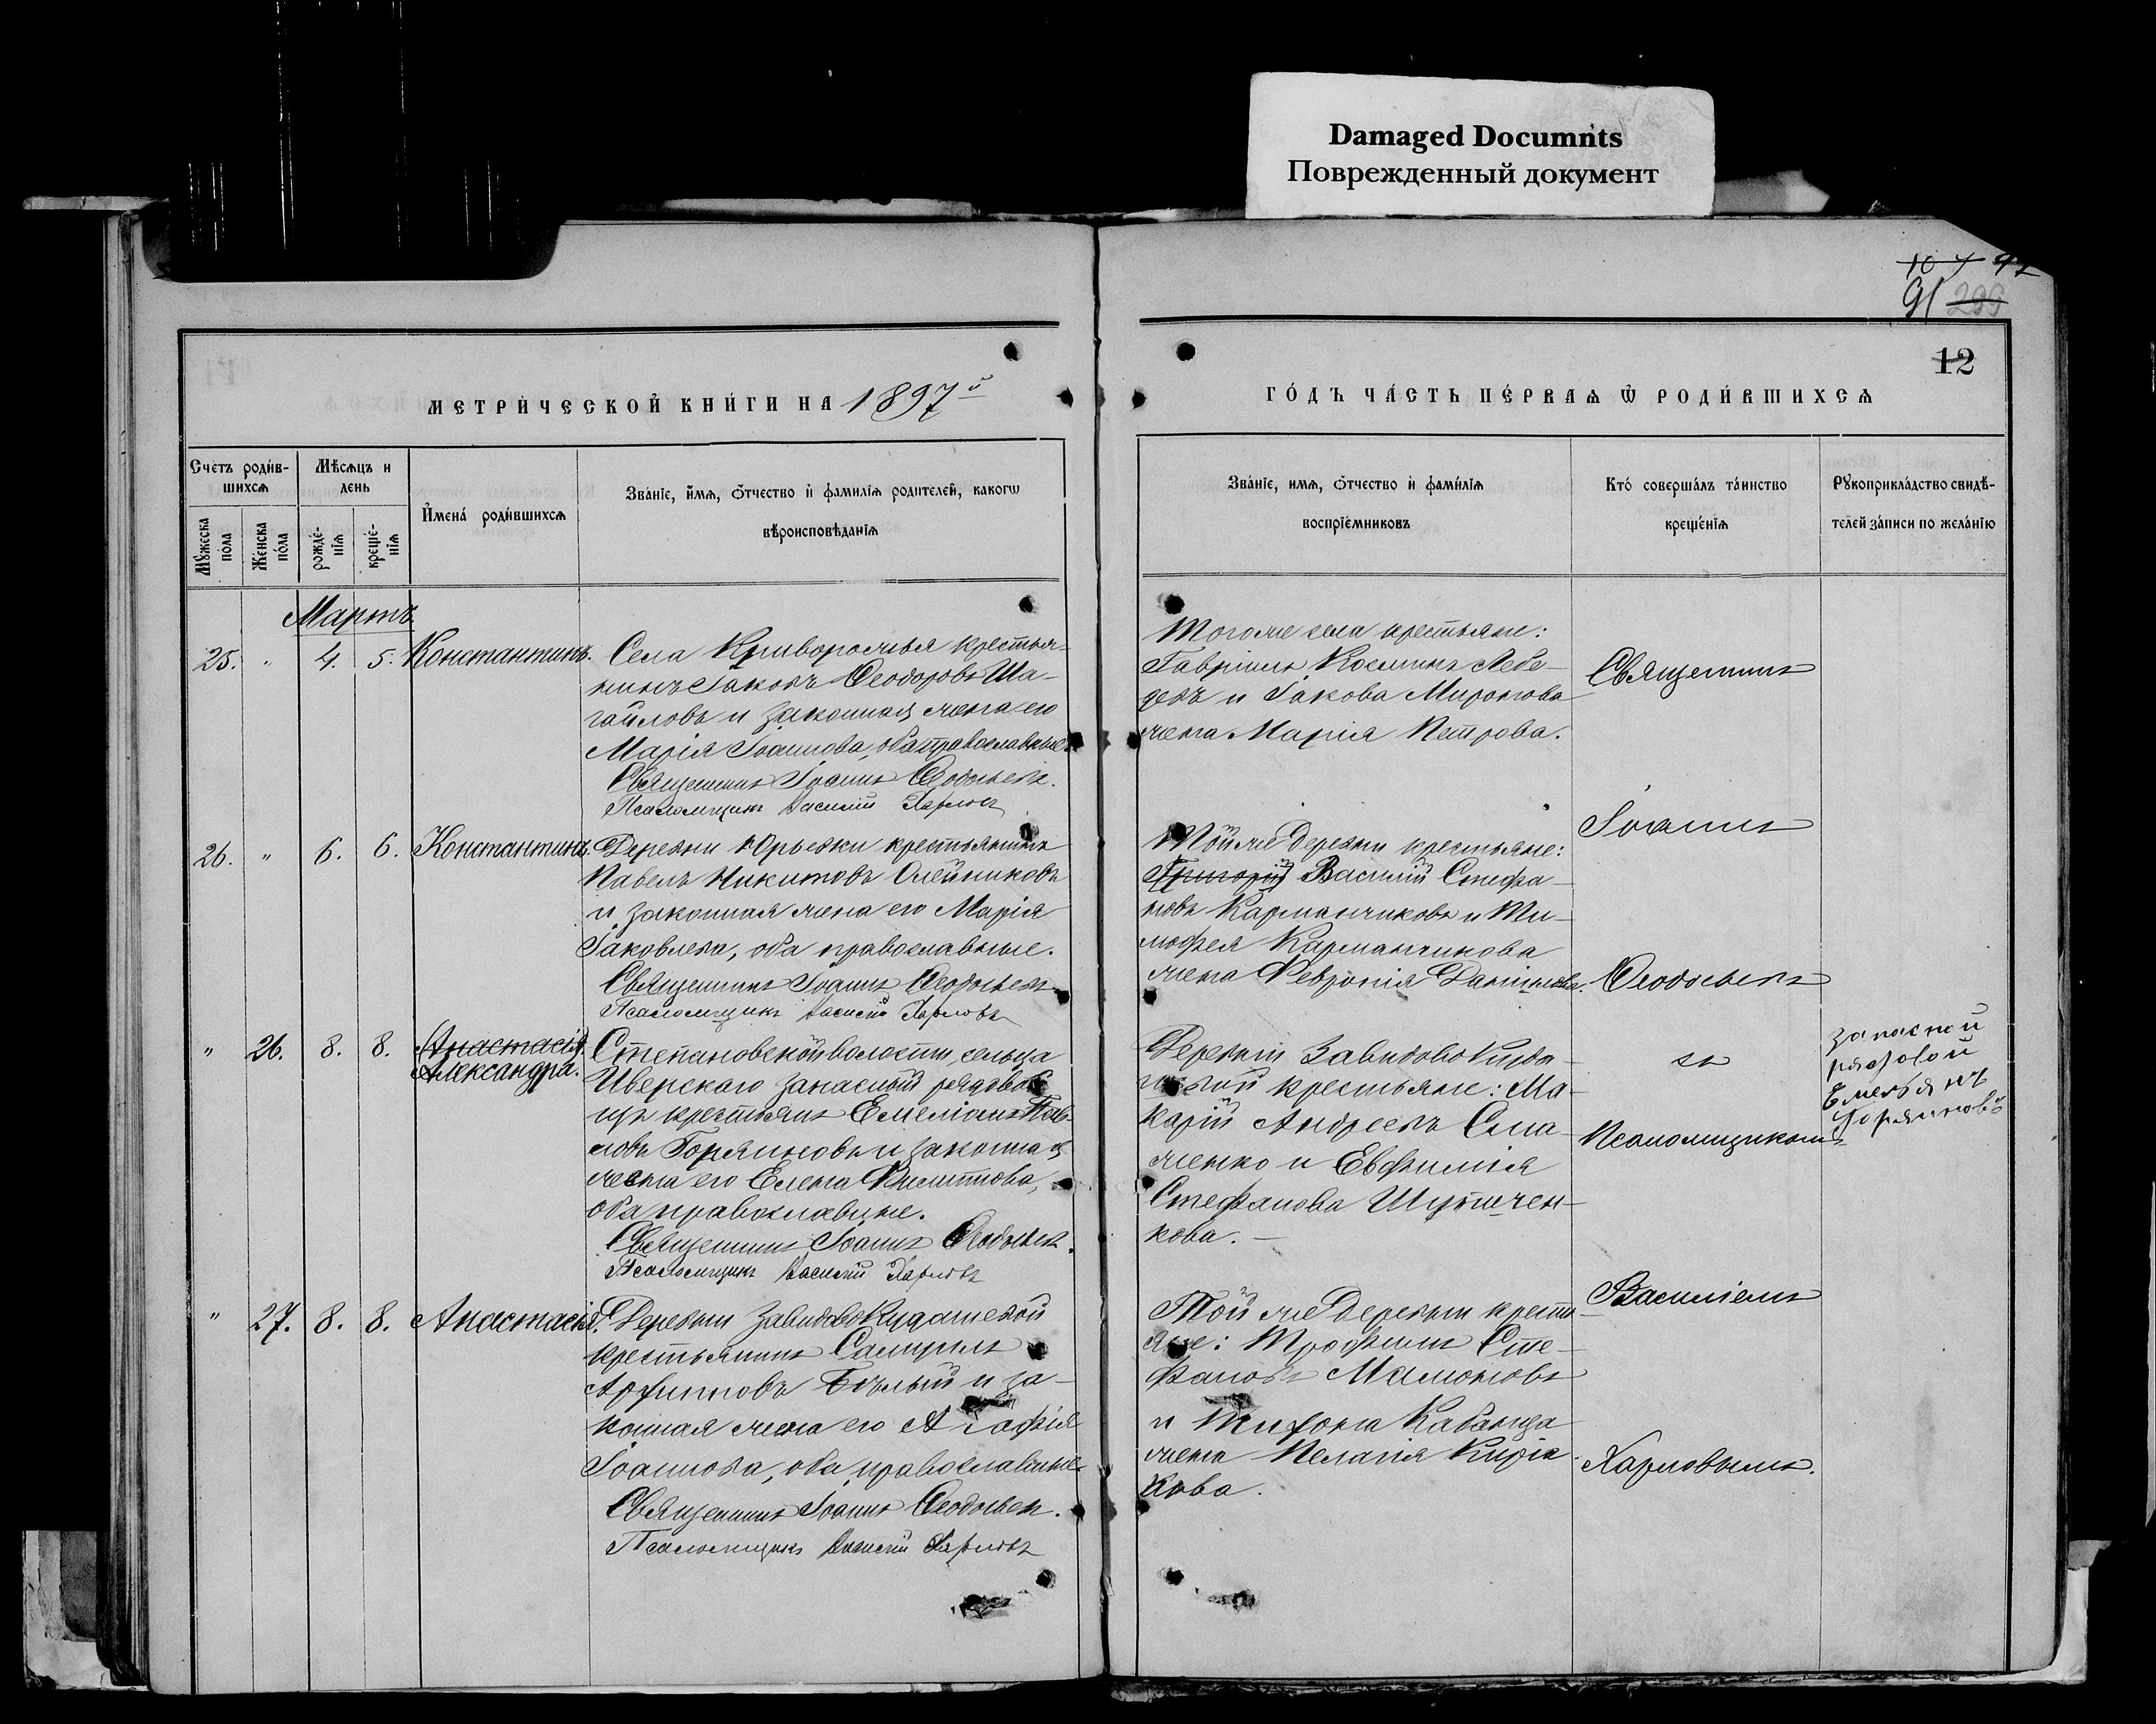 Damaged Documnts
Поврежденный документ
91 299
12
МЕТРИ́ЧЕСКОЙ КНИ́ГИ НА 1897й
ГО́ДЪ ЧА́СТЬ ПЕ́РВАѦ Ѡ҆ РОДИ́ВШИХСѦ
Счетъ роди́в-
шихсѧ
Мѣ́сѧцъ и
день
Мꙋ́жеска
по́ла
Же́нска
по́ла
рожде́-
нїѧ
креще́-
нїѧ
И҆мена́ роди́вшихсѧ
Зва́нїе, и҆́мѧ, ѻ҆́тчество и҆ фами́лїѧ роди́телей, какогѡ
вѣроисповѣ́данїѧ
Зва́нїе, имѧ, ѻ҆́тчество и҆ фами́лїѧ
воспрїе́мниковъ
Кто́ соверша́лъ та́инство
креще́нїѧ
Рꙋкоприкла́дство свидѣ́-
телей за́писи по жела́нїю
Мартъ
25. " 4. 5. Константинъ.
Села Криворожья крестья-
нинъ Іаковъ Ѳеодоровъ Ша-
гайловъ и законная жена его
Марія Іоаннова, оба православные.
Священникъ Іоаннъ Ѳеодосьевъ.
Псаломщикъ Василій Харловъ
Того же села крестьяне:
Гавріилъ Косминъ Лебе-
девъ и Іакова Миронова
жена Марія Петрова.
26. " 6. 6. Константинъ.
Деревни Юрьевки крестьянинъ
Павелъ Никитовъ Олейниковъ
и законная жена его Марія
Іаковлева, оба православные.
Священникъ Іоаннъ Ѳеодосьевъ
Псаломщикъ Василій Харловъ
Той же деревни крестьяне:
Григорій Василій Стефа-
новъ Карманчиковъ и Ти-
мофея Карманчикова
жена Февронія Даніилова.
" 26. 8. 8. Анастасія.
Александра.
Степановской волости, сельца
Иверскаго запасный рядовой
изъ крестьянъ Емеліанъ Пав-
ловъ Горяиновъ и законная
жена его Елена Филиппова,
оба православные.
Священникъ Іоаннъ Ѳеодосьевъ.
Псаломщикъ Василій Харловъ
Деревни Завидово Куда-
шевой крестьяне: Ма-
карій Андреевъ
и Евфимія
Стефанова
кова.
" 27. 8. 8. Анастасія.
Деревни Завидово Кудашевой
крестьянинъ Самуилъ
Архиповъ Бѣлый и за-
конная жена его Агафія
Іоаннова, оба православные
Священникъ Іоаннъ Ѳеодосьевъ.
Псаломщикъ Василій Харловъ
Той же деревни кресть-
яне: Трофимъ Сте-
фановъ Мамоновъ
и Тихона Кабанца
жена Пелагія Киріа-
кова.
Священникъ
Іоаннъ
Ѳеодосьевъ
съ
Псаломщикомъ
Василіемъ
Харловымъ.
запасной
рядовой
Емельянъ
Горяиновъ